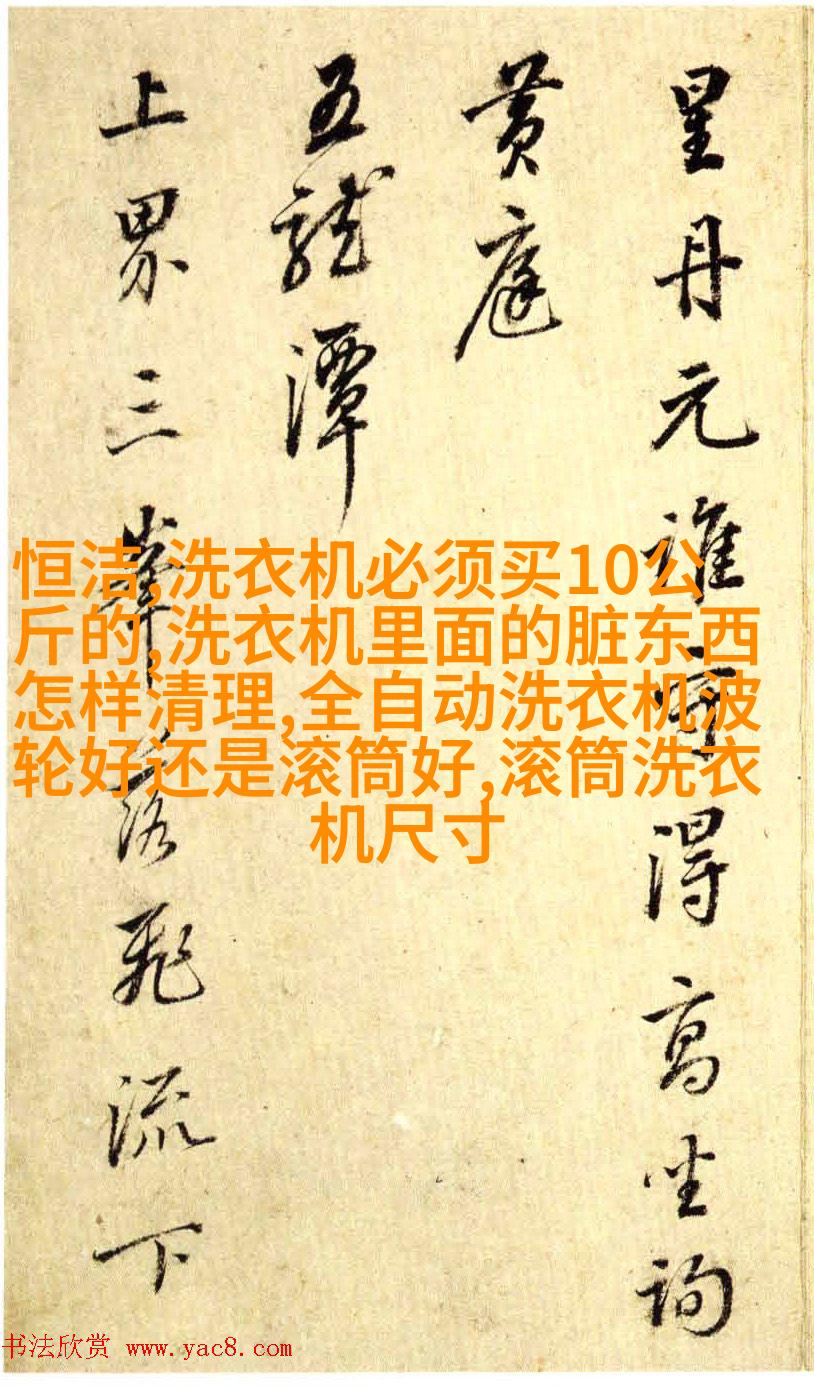 星丹元誰一啊得高坐詢
黄庭
五龍潭
上界三峯落飛流下
恒洁,洗衣机必须买10公
斤的,洗衣机里面的脏东西
怎样清理,全自动洗衣机波
轮好还是滚筒好,滚筒洗衣
机尺寸
书法欣赏 www.yac8.com